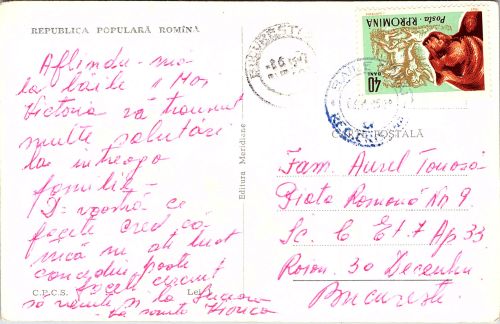 REPUBLICA POPULARĂ ROMÎNĂ
Aflîndu-mă
la băile "
Victoria vă trimit
multe salutări
la întreaga
familie -
D-voastră ce
faceți cred că
încă nu ați luat
concediu, poate
faceți
să veniți și la
- Vă sărută Viorica
C.P.C.S. Lei
Editura Meridiane
BUCUREȘTI
Posta R.P.ROMINA
40 BANI
CARTE POSTALĂ
Fam. Aurel
Piața Romană No 9
Sc. C Et. 7 Ap 33
Raion. 30 Decembrie
București